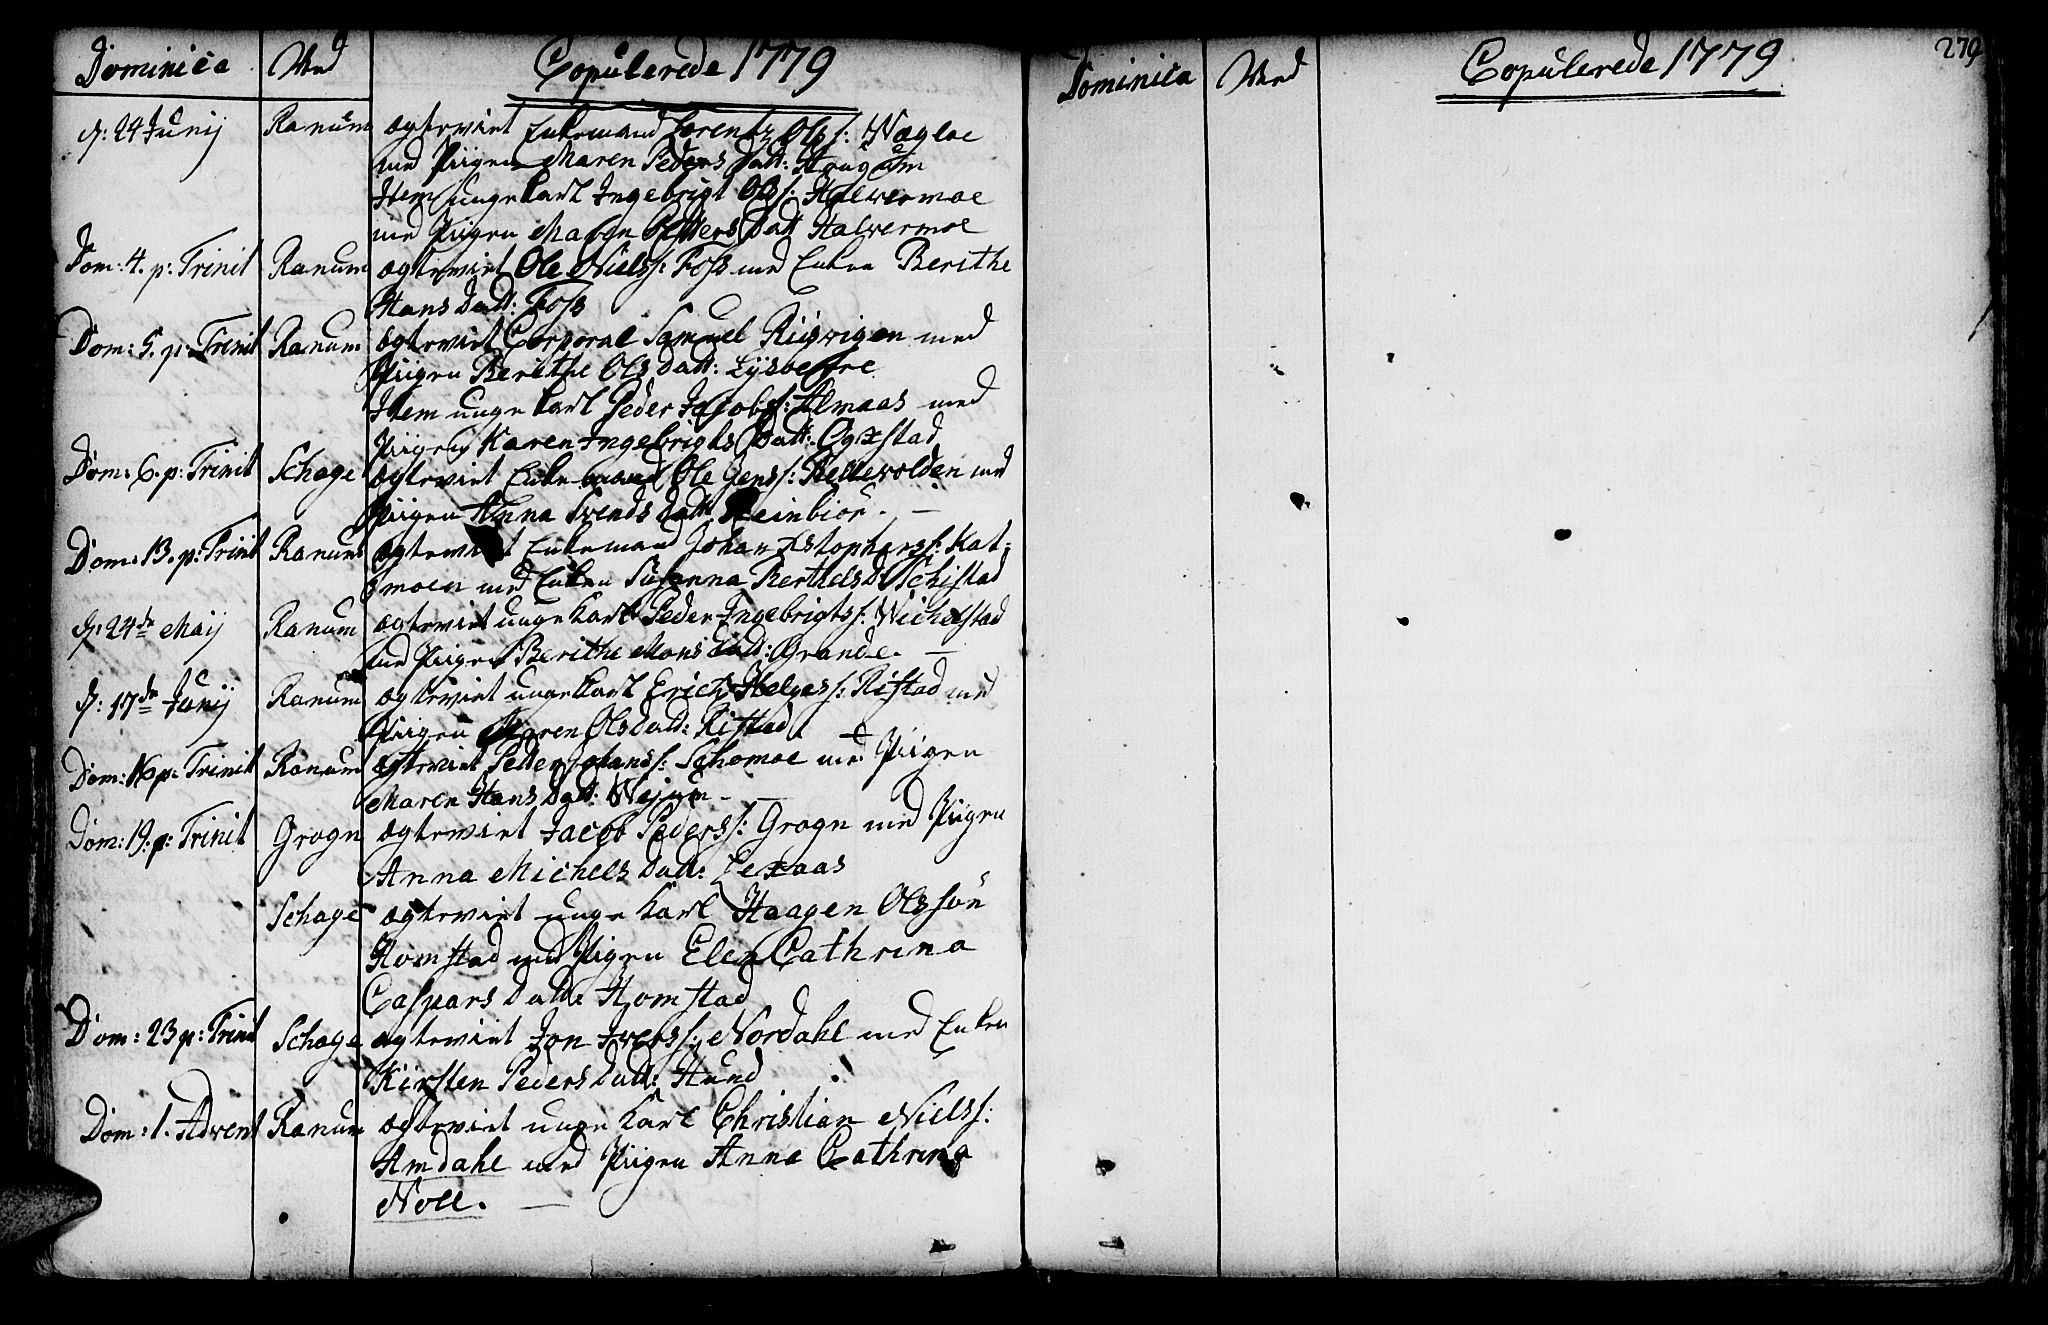 Dominica Ved Copulerede 1779
d: 24 Junij Ranum ægteviet Enkemand Lorentz Olss: Nægloe
med Piigen Maren Peders Datt: Haugum
Item unge Karl Ingebrigt Olss: Halvermoe
med Piigen Maren Datt Halvermoe
Dom: 4. p: Trinit Ranum ægteviet Ole Nielss: Foss med Enken Berithe
Hans Datt: Foss
Dom: 5. p: Trinit Ranum ægteviet Corporal Samuel Riisvigen med
Piigen Berithe Ols Datt:
Item unge Karl Peder Jacobs: Almaas med
Piigen Karen Ingebrigts Datt: Ogxstad
Dom: 6. p: Trinit Schage ægteviet Enkemand Ole Jenss: Bellevolden med
Piigen Anna Svends Datt Steinbiör. —
Dom: 13. p: Trinit Ranum ægteviet Enkemand Johan Xstophers: Kat-
moen med Enken Susanna Berthels D: Schistad
d: 24de Maij Ranum ægteviet unge Karl Peder Ingebrigtss: Wichelstad
med Piigen Berithe Mons Datt: Grande. —
d: 17de Junij Ranum ægteviet unge Karl Erich Helgess: Ristad med
Piigen Maren Ols Datt: Ristad. —
Dom: 16 p: Trinit Ranum ægteviet Peder Johanss: Schomoe med Piigen
Maren Hans Datt: Wejum — —
Dom: 19. p: Trinit Grogn ægteviet Jacob Pederss: Grogn med Piigen
Anna Michels Datt: Lexaas
Schage ægteviet unge Karl Haagen Olssön
Homstad med Piigen Elen Cathrina
Caspars Datt: Homstad
Dom: 23 p: Trinit Schage ægteviet Jon Iverss: Nordahl med Enken
Kirsten Peders Datt: Hund
Dom: 1. Advent Ranum ægteviet unge Karl Christian Nielss:
Amdahl med Piigen Anna Cathrina
Noll. —
Dominica Ved Copulerede 1779 279